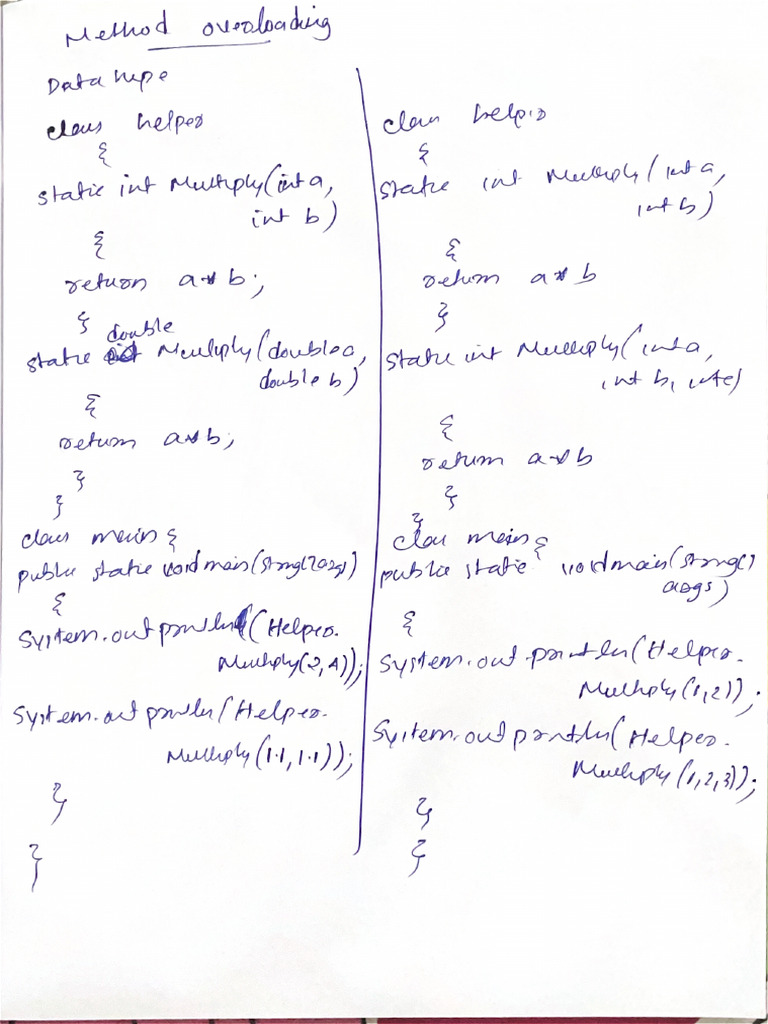 Method overloading
Data type
class helper
{
static int Multiply(int a,
int b)
{
return a*b;
}
static double Multiply(double a,
double b)
{
return a*b;
}
}
class main {
public static void main(String[] args)
{
System.out println(Helper.
Multiply(2,4));
System.out println(Helper.
Multiply(1.1,1.1));
}
}
class helper
{
static int Multiply(int a,
int b)
{
return a*b
}
static int Multiply(int a,
int b, int c)
{
return a*b
}
}
class main {
public static void main(String[]
args)
{
System.out.println(Helper.
Multiply(1,2));
System.out println(Helper.
Multiply(1,2,3));
}
}